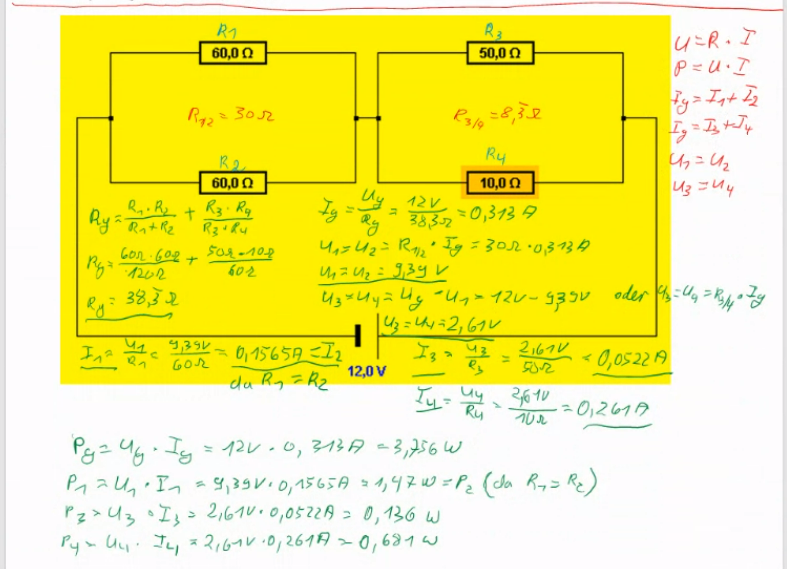 R1
R3
60,0 Ω
50,0 Ω
U = R · I
P = U · I
Ig = I1 + I2
Ig = I3 + I4
U1 = U2
U3 = U4
R1/2 = 30Ω
R3/4 = 8,3̅Ω
R2
R4
60,0 Ω
10,0 Ω
Rg = R1 · R2 / R1 + R2 + R3 · R4 / R3 + R4
Rg = 60Ω · 60Ω / 120Ω + 50Ω · 10Ω / 60Ω
Rg = 38,3̅Ω
Ig = Ug / Rg = 12V / 38,3Ω = 0,313 A
U1 = U2 = R1/2 · Ig = 30Ω · 0,313A
U1 = U2 = 9,39 V
U3 = U4 = Ug - U1 = 12V - 9,39V oder U3 = U4 = R3/4 · Ig
U3 = U4 = 2,61V
12,0 V
I1 = U1 / R1 = 9,39V / 60Ω = 0,1565A = I2
da R1 = R2
I3 = U3 / R3 = 2,61V / 50Ω = 0,0522 A
I4 = U4 / R4 = 2,61V / 10Ω = 0,261A
Pg = Ug · Ig = 12V · 0,313A = 3,756 W
P1 = U1 · I1 = 9,39V · 0,1565A = 1,47W = P2 (da R1 = R2)
P3 = U3 · I3 = 2,61V · 0,0522A = 0,136 W
P4 = U4 · I4 = 2,61V · 0,261A = 0,681 W